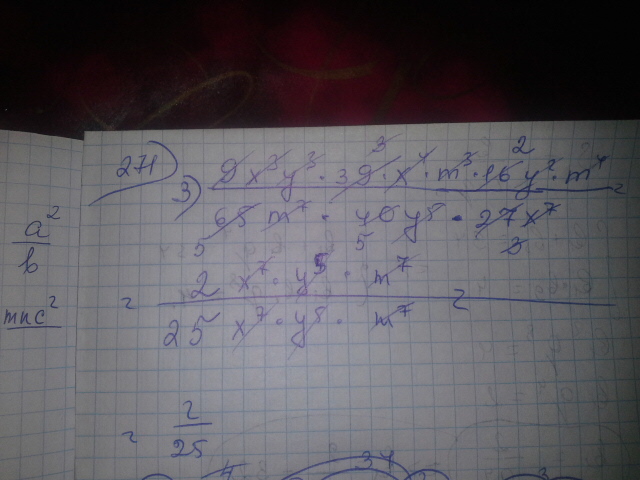 271)
3) 9x³y³ · 39 · x⁴ · m³ · 16y² · m⁴ =
3 2
65 m⁷ · 40 y⁵ · 27x⁷
5 5 3
= 2 x⁷ · y⁵ · m⁷ =
25 x⁷ · y⁵ · m⁷
= 2
25
a²
b
mnc²